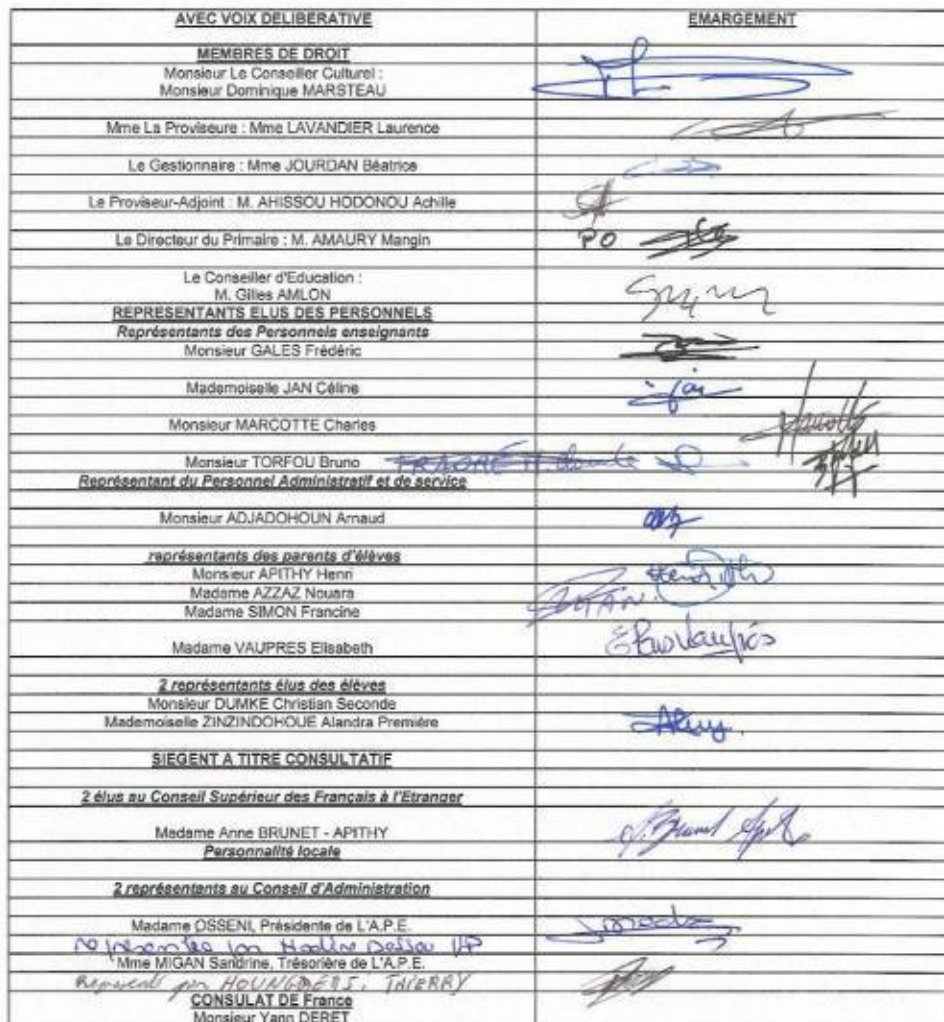 AVEC VOIX DELIBERATIVE EMARGEMENT
MEMBRES DE DROIT
Monsieur Le Conseiller Culturel :
Monsieur Dominique MARSTEAU
Mme La Proviseure : Mme LAVANDIER Laurence
Le Gestionnaire : Mme JOURDAN Béatrice
Le Proviseur-Adjoint : M. AHISSOU HODONOU Achille
Le Directeur du Primaire : M. AMAURY Mangin PO
Le Conseiller d'Education :
M. Gilles AMLON
REPRESENTANTS ELUS DES PERSONNELS
Représentants des Personnels enseignants
Monsieur GALES Frédéric
Mademoiselle JAN Céline
Monsieur MARCOTTE Charles
Monsieur TORFOU Bruno
Représentant du Personnel Administratif et de service
Monsieur ADJADOHOUN Arnaud
représentants des parents d'élèves
Monsieur APITHY Henri
Madame AZZAZ Nouara
Madame SIMON Francine
Madame VAUPRES Elisabeth
2 représentants élus des élèves
Monsieur DUMKE Christian Seconde
Mademoiselle ZINZINDOHOUE Alandra Première
SIEGENT A TITRE CONSULTATIF
2 élus au Conseil Supérieur des Français à l'Etranger
Madame Anne BRUNET - APITHY
Personnalité locale
2 représentants au Conseil d'Administration
Madame OSSENI, Présidente de L'A.P.E.
Mme MIGAN Sandrine, Trésorière de L'A.P.E.
THIERRY
CONSULAT DE France
Monsieur Yann DERET